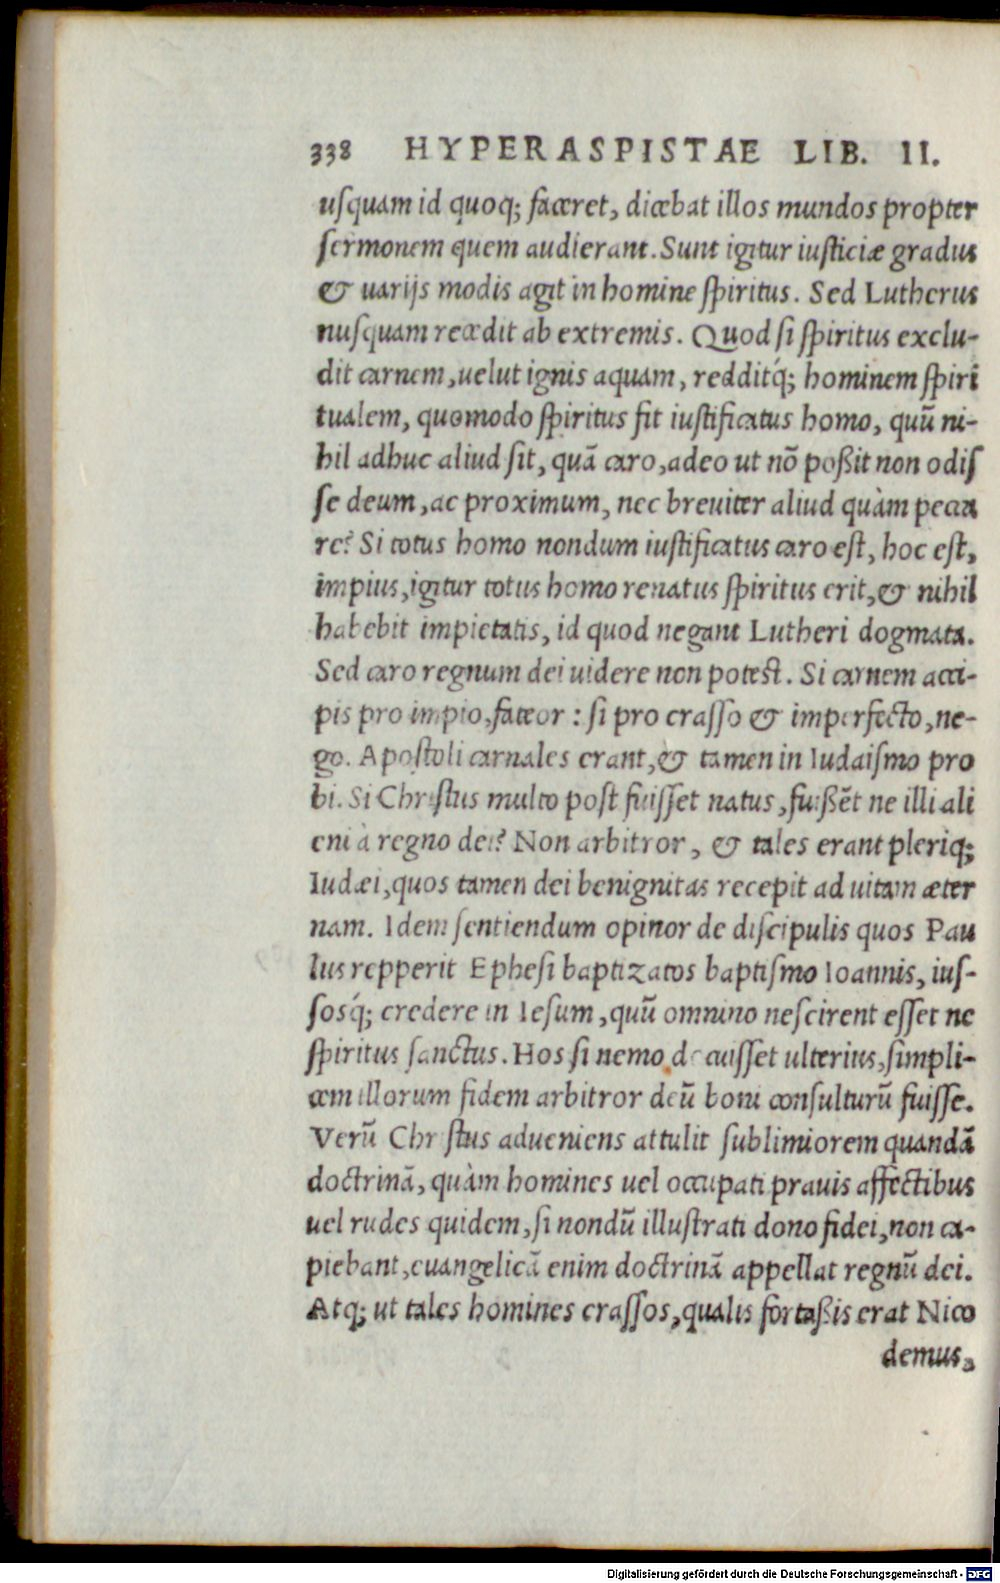 338 HYPERASPISTAE LIB. II.
usquam id quoq; faceret, dicebat illos mundos propter
sermonem quem audierant. Sunt igitur iusticiæ gradus
& uarijs modis agit in homine spiritus. Sed Lutherus
nusquam recedit ab extremis. Quod si spiritus exclu-
dit carnem, uelut ignis aquam, redditq́; hominem spiri
tualem, quomodo spiritus fit iustificatus homo, quū ni-
hil adhuc aliud sit, quā caro, adeo ut nō poßit non odis
se deum, ac proximum, nec breuiter aliud quàm pecca
re? Si totus homo nondum iustificatus caro est, hoc est,
impius, igitur totus homo renatus spiritus erit, & nihil
habebit impietatis, id quod negant Lutheri dogmata.
Sed caro regnum dei uidere non potest. Si carnem acci-
pis pro impio, fateor: si pro crasso & imperfecto, ne-
go. Apostoli carnales erant, & tamen in Iudaismo pro
bi. Si Christus multo post fuisset natus, fuißēt ne illi ali
eni à regno dei? Non arbitror, & tales erant pleriq;
Iudæi, quos tamen dei benignitas recepit ad uitam æter
nam. Idem sentiendum opinor de discipulis quos Pau
lus repperit Ephesi baptizatos baptismo Ioannis, ius-
sosq́; credere in Iesum, quū omnino nescirent esset ne
spiritus sanctus. Hos si nemo docuisset ulterius, simpli-
cem illorum fidem arbitror deū boni consulturū fuisse.
Verū Christus adueniens attulit sublimiorem quandā
doctrinā, quàm homines uel occupati prauis affectibus
uel rudes quidem, si nondū illustrati dono fidei, non ca-
piebant, euangelicā enim doctrinā appellat regnū dei.
Atq; ut tales homines crassos, qualis fortaßis erat Nico
demus,
Digitalisierung gefördert durch die Deutsche Forschungsgemeinschaft - DFG